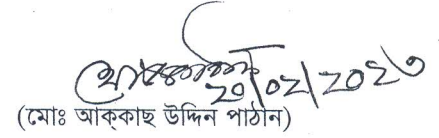 ২০/০২/২০২৩
(মোঃ আক্কাছ উদ্দিন পাঠান)